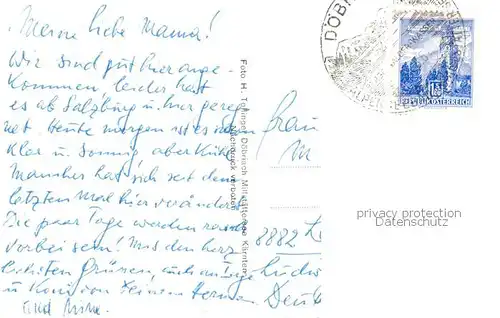 Meine liebe Mama!
Wir sind gut hier ange-
kommen, leider hat
es ab Salzburg u. hier gereg
net. Heute morgen ist es
klar u. sonnig, aber kühl
Mancher hat sich seit dem
letzten Mal hier verändert
Die paar Tage werden rasch
vorbei sein! Mit den herz
lichsten Grüssen, auch an
u. von Deinem Herman
und
Foto H. Döbriach Millstättersee Kärnten
Nachdruck verboten
DÖBR
REPUBLIK ÖSTERREICH
Frau
M
8882
Ludw
Deut
privacy protection
Datenschutz